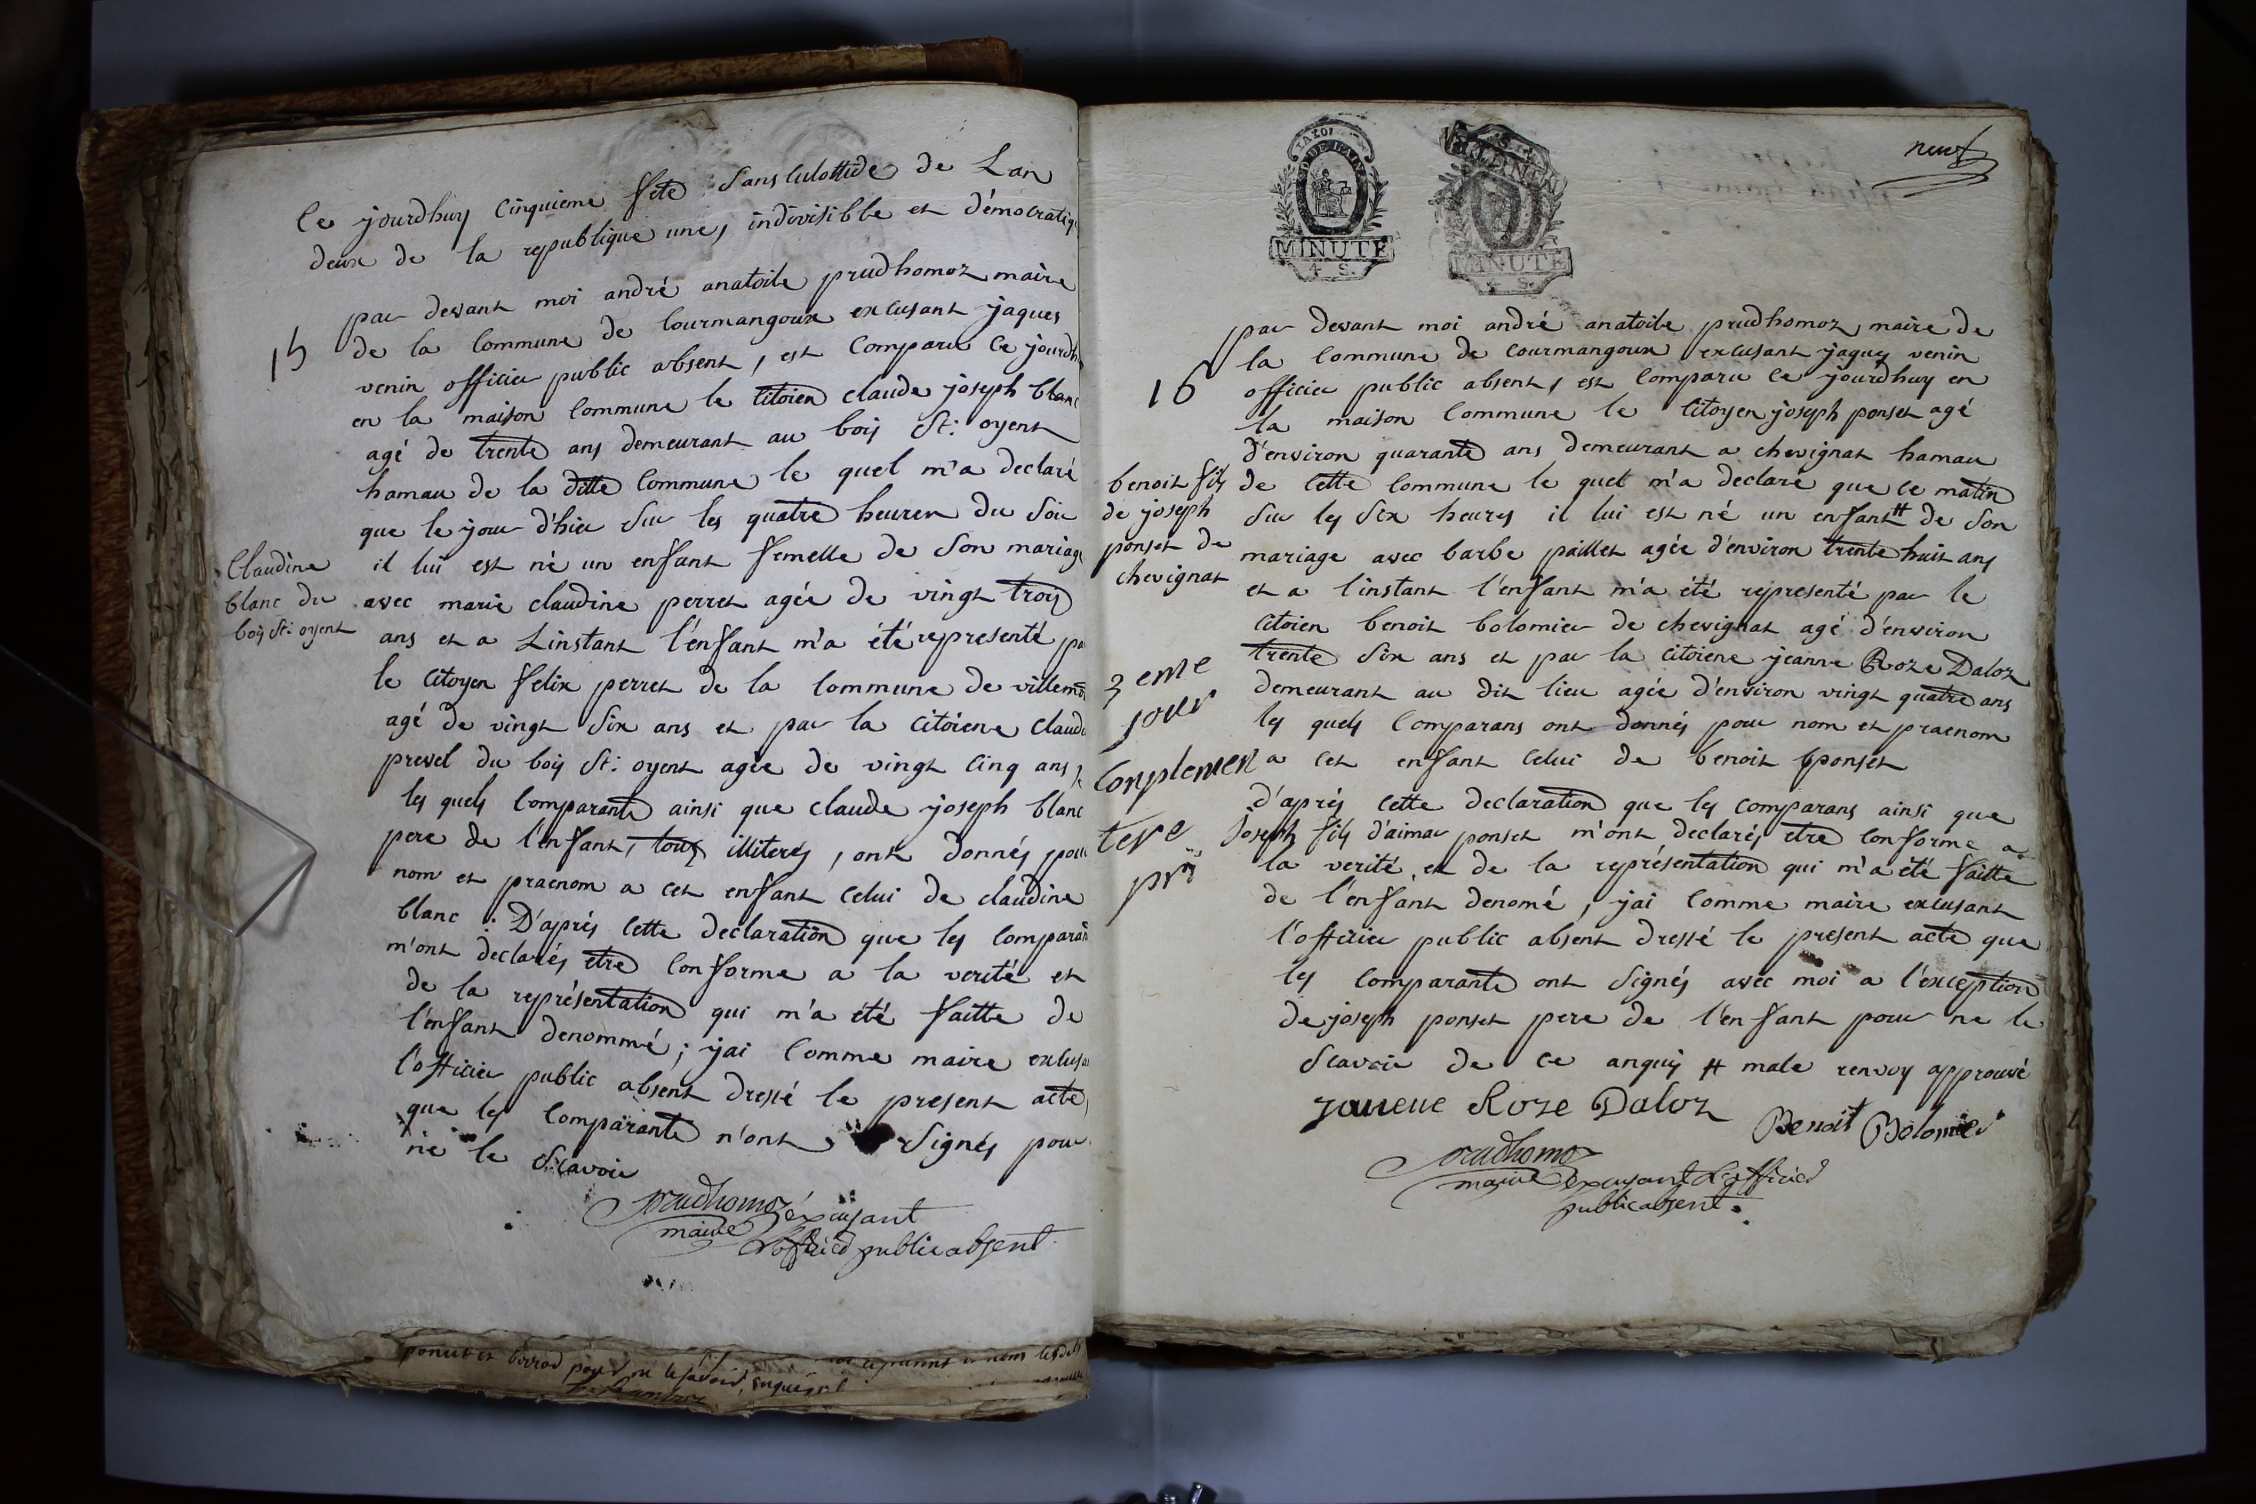 Ce jourdhuy Cinquieme fete Sansculottide de Lan
deux de la republique une, indivisible et démocratiq
15
par devant moi andré anatoile prudhomoz maire
de la Commune de Courmangoux excusant jaques
venin officier public absent, est Comparu Ce jourdh
en la maison Commune le Citoien claude joseph blanc
agé de trente ans demeurant au bois St: oyent
hamau de la ditte Commune le quel m'a declaré
que le jour d'hier Sur les quatre heures du Soir
il lui est né un enfant femelle de Son mariage
Claudine
blanc du
bois St: oyent
avec marie claudine perret agée de vingt trois
ans et a Linstant l'énfant m'a été representé pa
le Citoyen felix perret de la Commune de villemo
agé de vingt Six ans et par la Citoiene Claud
prevel du bois St: oyent agée de vingt Cinq ans,
les quels Comparants ainsi que claude joseph blanc
pere de l'énfant, tous illiterés, ont donnés pour
nom et praenom a cet enfant Celui de claudine
blanc: D'aprés Cette declaration que les Comparan
m'ont declarés etre Conforme a la verité et
de la représentation qui m'a été faitte de
l'énfant denommé; jai Comme maire excusa
l'officier public absent dressé le present acte,
que les Comparants n'ont Signés pour
ne le Scavoir
prudhomoz excusant
maire L'officier public absent
ponset et
pour ne le
neuf
MINUTE
4. S.
MINUTE
16
par devant moi andré anatoile prudhomoz maire de
la Commune de Courmangoux excusant jaques venin
officier public absent, est Comparu Ce jourdhuy en
la maison Commune le Citoyen joseph ponset agé
d'environ quarante ans demeurant a chevignat hamau
benoit fils
de joseph
ponset de
chevignat
de Cette Commune le quel m'a declaré que Ce matin
Sur les Six heures il lui est né un enfant # de Son
mariage avec barbe paillet agée d'environ trente huit ans
et a l'instant l'énfant m'a été representé par le
Citoien benoit bolomier de chevignat agé d'environ
trente Six ans et par la Citoiene jeanne Roze Daloz
3 eme
jour
Conplemen
tere
demeurant au dit lieu agée d'environ vingt quatre ans
les quels Comparans ont donnés pour nom et praenom
a cet enfant Celui de benoit ponset
d'aprés Cette declaration que les Comparans ainsi que
joseph fils d'aimar ponset m'ont declarés etre Conforme a
la verité, et de la représentation qui m'a été faitte
de l'énfant denomé, jai Comme maire excusant
l'officier public absent dressé le present acte que
les Comparants ont Signés avec moi a l'exception
de joseph ponset pere de l'énfant pour ne le
Scavoir de Ce anquis # male renvoy approuvé
Roze Daloz Benoit Bolomier
prudhomoz
maire excusant L'officier
public absent.